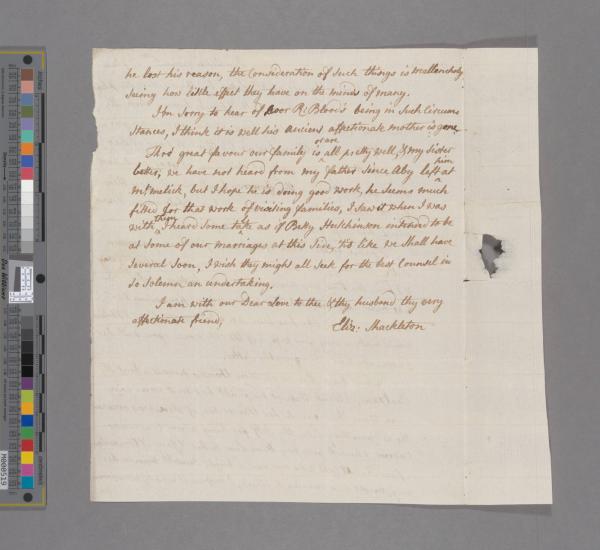 he lost his reason, the Consideration of Such things is mellancholy
Seeing how little effect they have on the minds of many.
I'm Sorry to hear of Poor R: Blood's being in Such Circum
Stances, I think it is well his ancient affectionate mother is gone
Thro' great favour our family is all pretty well, & my Sister
or are
better, we have not heard from my father Since Aby left him at
Mt melick, but I hope he is doing good work, he Seems much
fitted for that work of visiting families, I Saw it when I was
with them, I heard Some talk as if Betty Hutchinson intended to be
at Some of our marriages at this Side, tis like we Shall have
Several Soon, I wish they might all Seek for the best Counsel in
So Solemn an undertaking.
I am with our Dear Love to thee & thy husband thy very
affectionate friend,
Eliz: Shackleton
M000519